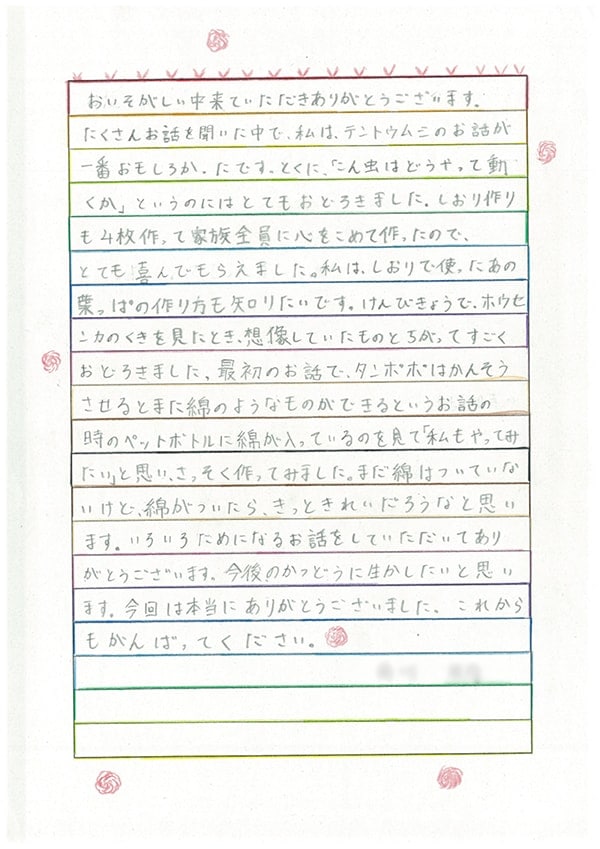 おいそがしい中来ていただきありがとうございます。
たくさんお話を聞いた中で、私は、テントウムシのお話が
一番おもしろかったです。とくに、「こん虫はどうやって動
くか」というのにはとてもおどろきました。しおり作り
も4枚作って家族全員に心をこめて作ったので、
とても喜んでもらえました。私は、しおりで使ったあの
葉っぱの作り方も知りたいです。けんびきょうで、ホウセ
ンカのくきを見たとき、想像していたものとちがってすごく
おどろきました、最初のお話で、タンポポはかんそう
させるとまた綿のようなものができるというお話の
時のペットボトルに綿が入っているのを見て「私もやってみ
たい」と思い、さっそく作ってみました。まだ綿はついていな
いけど、綿がついたら、きっときれいだろうなと思い
ます。いろいろためになるお話をしていただいてあり
がとうございます。今後のかつどうに生かしたいと思い
ます。今回は本当にありがとうございました。これから
もがんばってください。